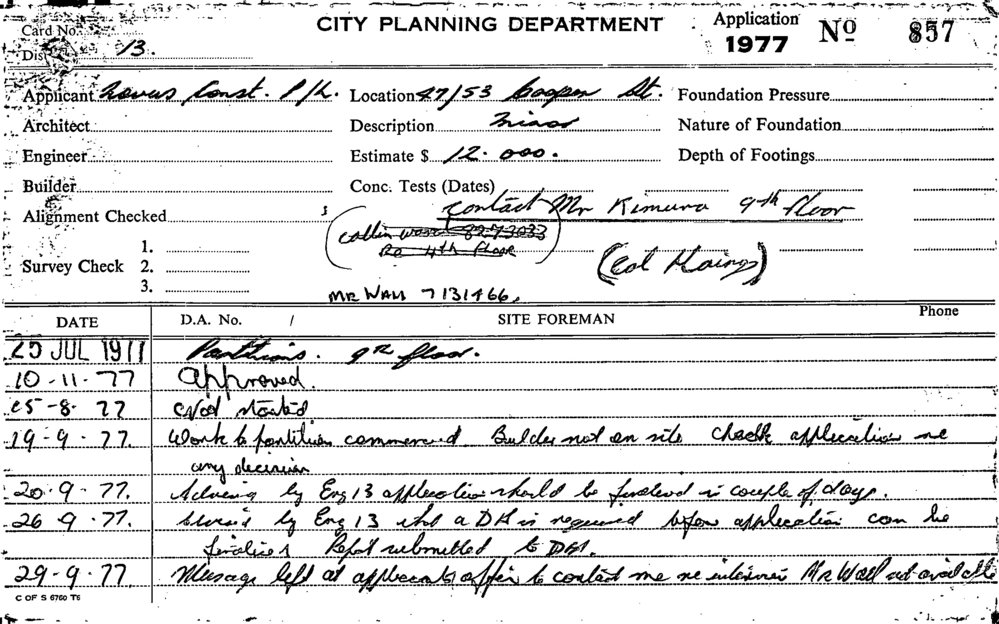 Card No.
CITY PLANNING DEPARTMENT
Application 1977 No 857
Dis 13.
Applicant Const. P/L. Location 47/53 Cooper St. Foundation Pressure
Architect Description Minor Nature of Foundation
Engineer Estimate $ 12.000. Depth of Footings
Builder Conc. Tests (Dates)
Alignment Checked contact Mr Kimura 9th floor
1. Collin Ward 8273033
Survey Check 2. Re 4th Floor (Col Haings)
3. MR WALL 7131466.
DATE D.A. No. / SITE FOREMAN Phone
25 JUL 1977 Partitions. 9th floor.
10-11-77 Approved.
15-8-77 Not started
19-9-77. Work to partition commenced. Builder not on site check application re
any decision
20.9-77. Advising by Eng 13 application should be finalised in couple of days.
26 9.77. Advised by Eng 13 that a DA is required before application can be
finalised Report submitted to DA.
29-9.77 Message left at applicants office to contact me re Mr Wall not available
C OF S 6760 T6